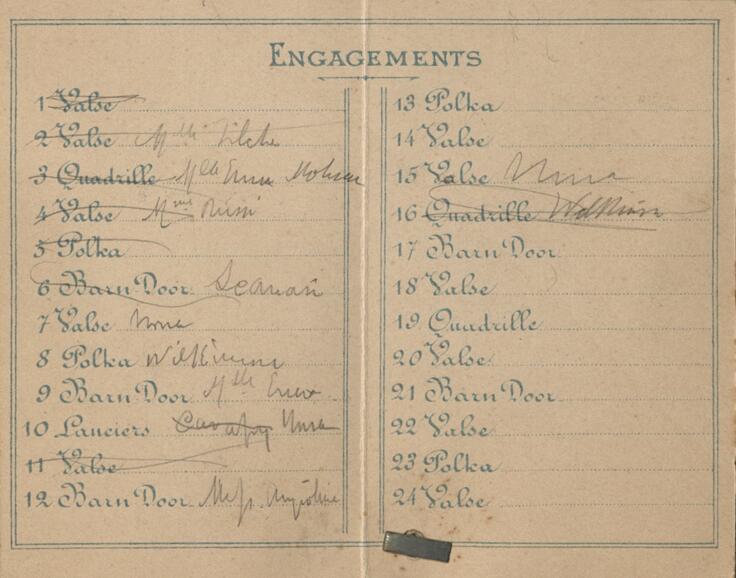 ENGAGEMENTS
1 Valse
2 Valse Mlle
3 Quadrille Mlle Emma
4 Valse Mme
5 Polka
6 Barn Door
7 Valse Nora
8 Polka Wilkinson
9 Barn Door Mlle
10 Lanciers Cavafy
11 Valse
12 Barn Door
13 Polka
14 Valse
15 Valse
16 Quadrille Wilkinson
17 Barn Door
18 Valse
19 Quadrille
20 Valse
21 Barn Door
22 Valse
23 Polka
24 Valse